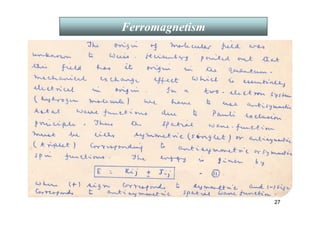 Ferromagnetism
The origin of molecular field was
unknown to Weiss. Heisenberg pointed out that
this field has its origin in the quantum-
mechanical exchange effect which is essentially
electrical in origin. In a two-electron system
(hydrogen molecule) we have to use antisymmetric
total wave functions due to Pauli exclusion
principle. Thus the spatial wave-function
must be either symmetric (singlet) or antisymmetric
(triplet) corresponding to antisymmetric or symmetric
spin functions. The energy is given by
E = Kij ± Jij
where (+) sign corresponds to symmetric and (-) sign
corresponds to antisymmetric spatial wave function.
27